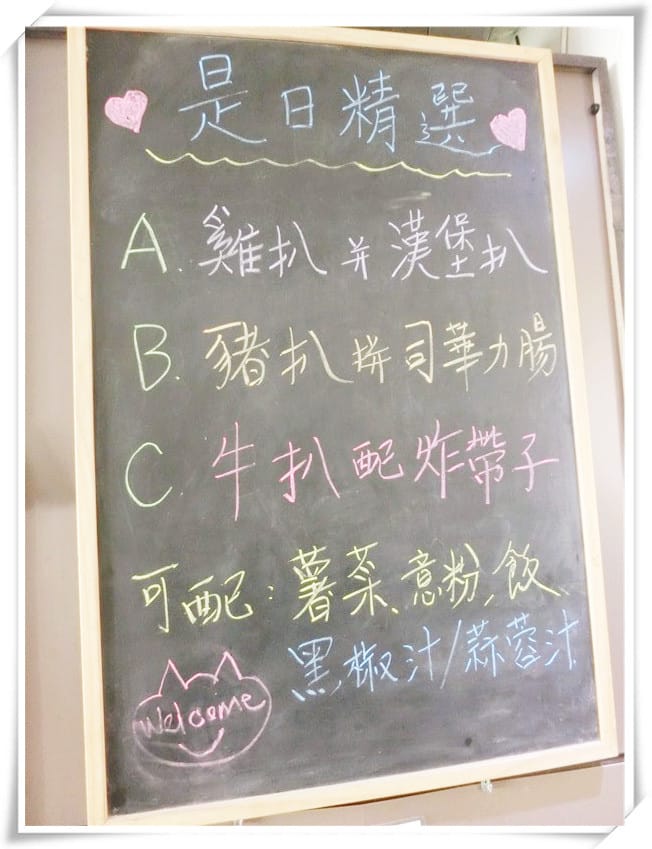 是日精選
A. 雞扒并漢堡扒
B. 豬扒拼司華力腸
C. 牛扒配炸帶子
可配：薯菜、意粉，飯
黑椒汁/蒜蓉汁
Welcome